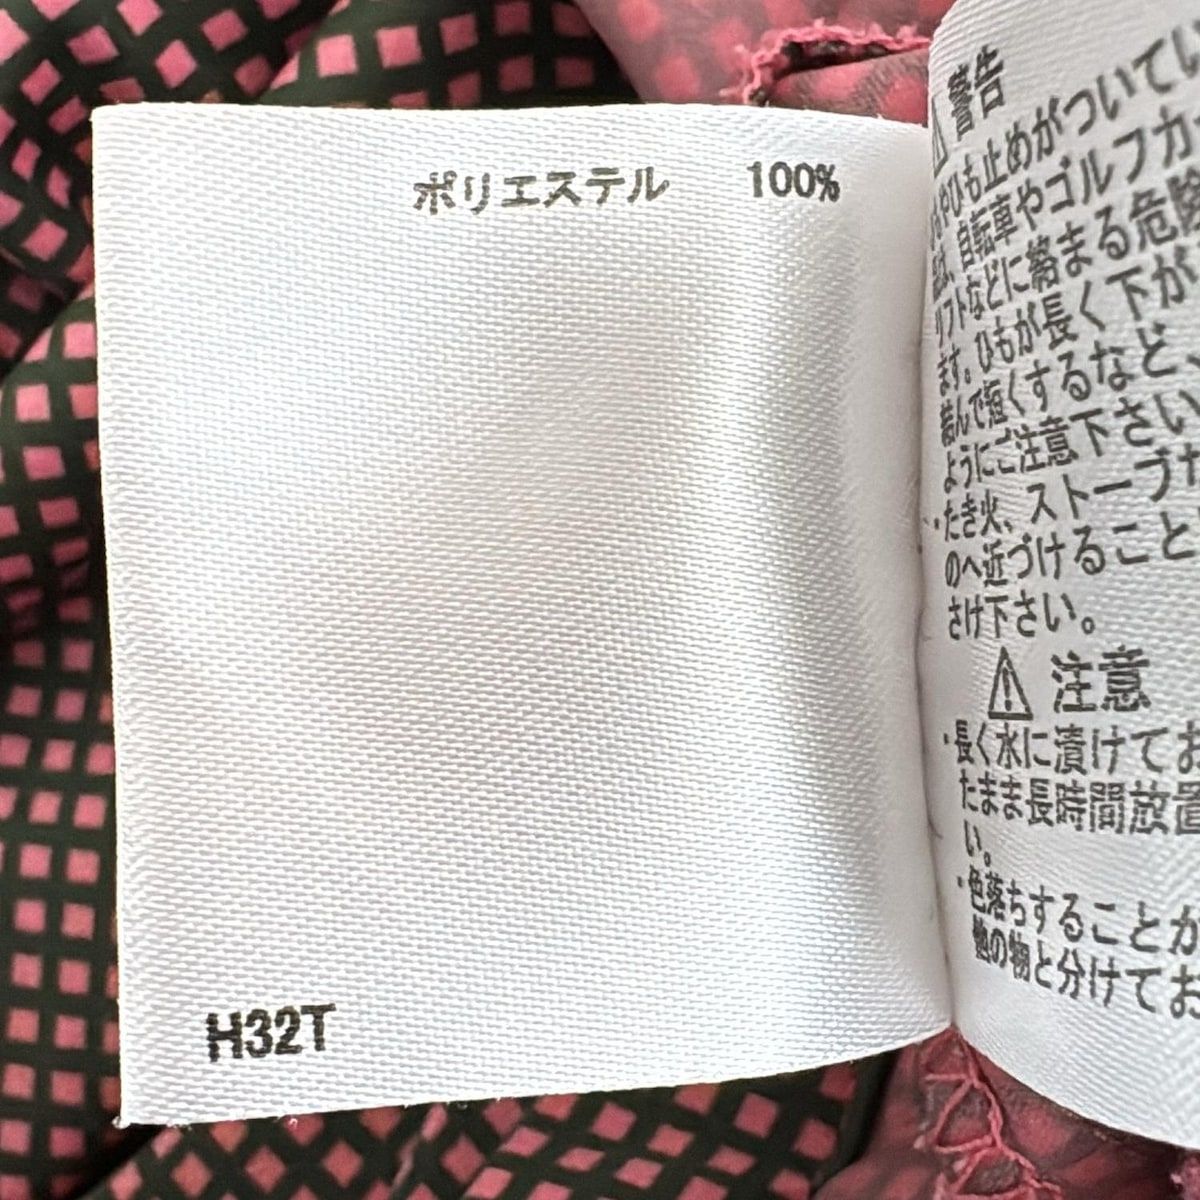 ポリエステル 100%
H32T
警告
やひも止めがついてい
自転車やゴルフカー
リフトなどに絡まる危険
ます。ひもが長く下が
結んで短くするなど、
ようにご注意下さい
・たき火、ストーブや
のへ近づけること
さけ下さい。
⚠ 注意
・長く水に漬けてお
たまま長時間放置
い。
・色落ちすることが
他の物と分けてお